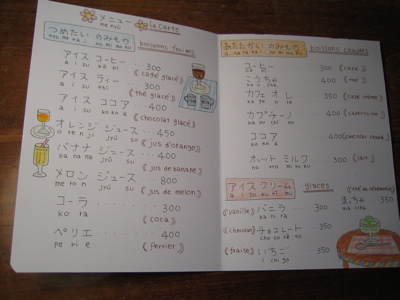 メニュー
menyū
La Carte
つめたい のみもの
tsu me ta i no mi mo no
boissons froides
アイス コーヒー ‥‥ 300
a i su kō hī
(café glacé)
アイス ティー ‥‥ 300
a i su tī
(thé glacé)
アイス ココア ‥‥ 400
a i su ko ko a
(chocolat glacé)
オレンジ ジュース ‥‥ 450
o re n ji jū su
(jus d'orange)
バナナ ジュース ‥‥ 400
ba na na jū su
(jus de banane)
メロン ジュース ‥‥ 800
me ro n jū su
(jus de melon)
コーラ ‥‥ 300
kō ra
(coca)
ペリエ ‥‥ 400
pe ri e
(Perrier)
あたたかい のみもの
a ta ta ka i no mi mo no
boissons chaudes
コーヒー ‥‥ 300 (café)
kō hī
こうちゃ ‥‥ 400 (thé)
カフェ オレ ‥‥ 350 (café crème)
カプチーノ ‥‥ 400
ココア ‥‥ 400
ko ko a
ホット ミルク ‥‥ 300 (lait)
アイスクリーム
a i su ku rī mu
glaces
(vanille) バニラ ‥‥ 300
ba ni ra
まっちゃ ‥‥ 350
(chocolat) チョコレート ‥‥ 350
(fraise) いちご ‥‥ 350
i chi go